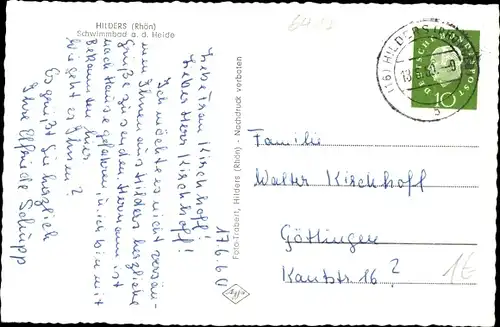 HILDERS (Rhön)
Schwimmbad a. d. Heide
17.6.60
Liebe Frau Kirchhoff!
Lieber Herr Kirchhoff!
Ich möchte es nicht versäu-
men Ihnen aus Hilders herzliche
Grüße zu senden. Hermann ist
nach Hause gefahren, u. ich bin mit
Bekannten hier.
Wie geht es Ihnen?
Es grüßt Sie herzlich
Ihre Elfriede Schupp
Foto-Trabert, Hilders (Rhön) - Nachdruck verboten
Agfa
(16) HILDERS
DEUTSCHE BUNDESPOST
10
Familie
Walter Kirchhoff
Göttingen
Kantstr. 16?
1€